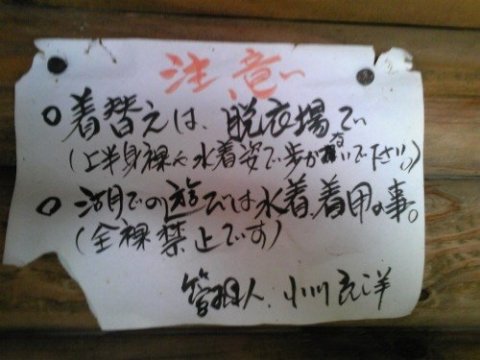 注意
○着替えは、脱衣場で
(上半身裸や水着姿で歩かないで下さい)
○湖での遊では水着、着用の事。
(全裸禁止です)
管理人、小川